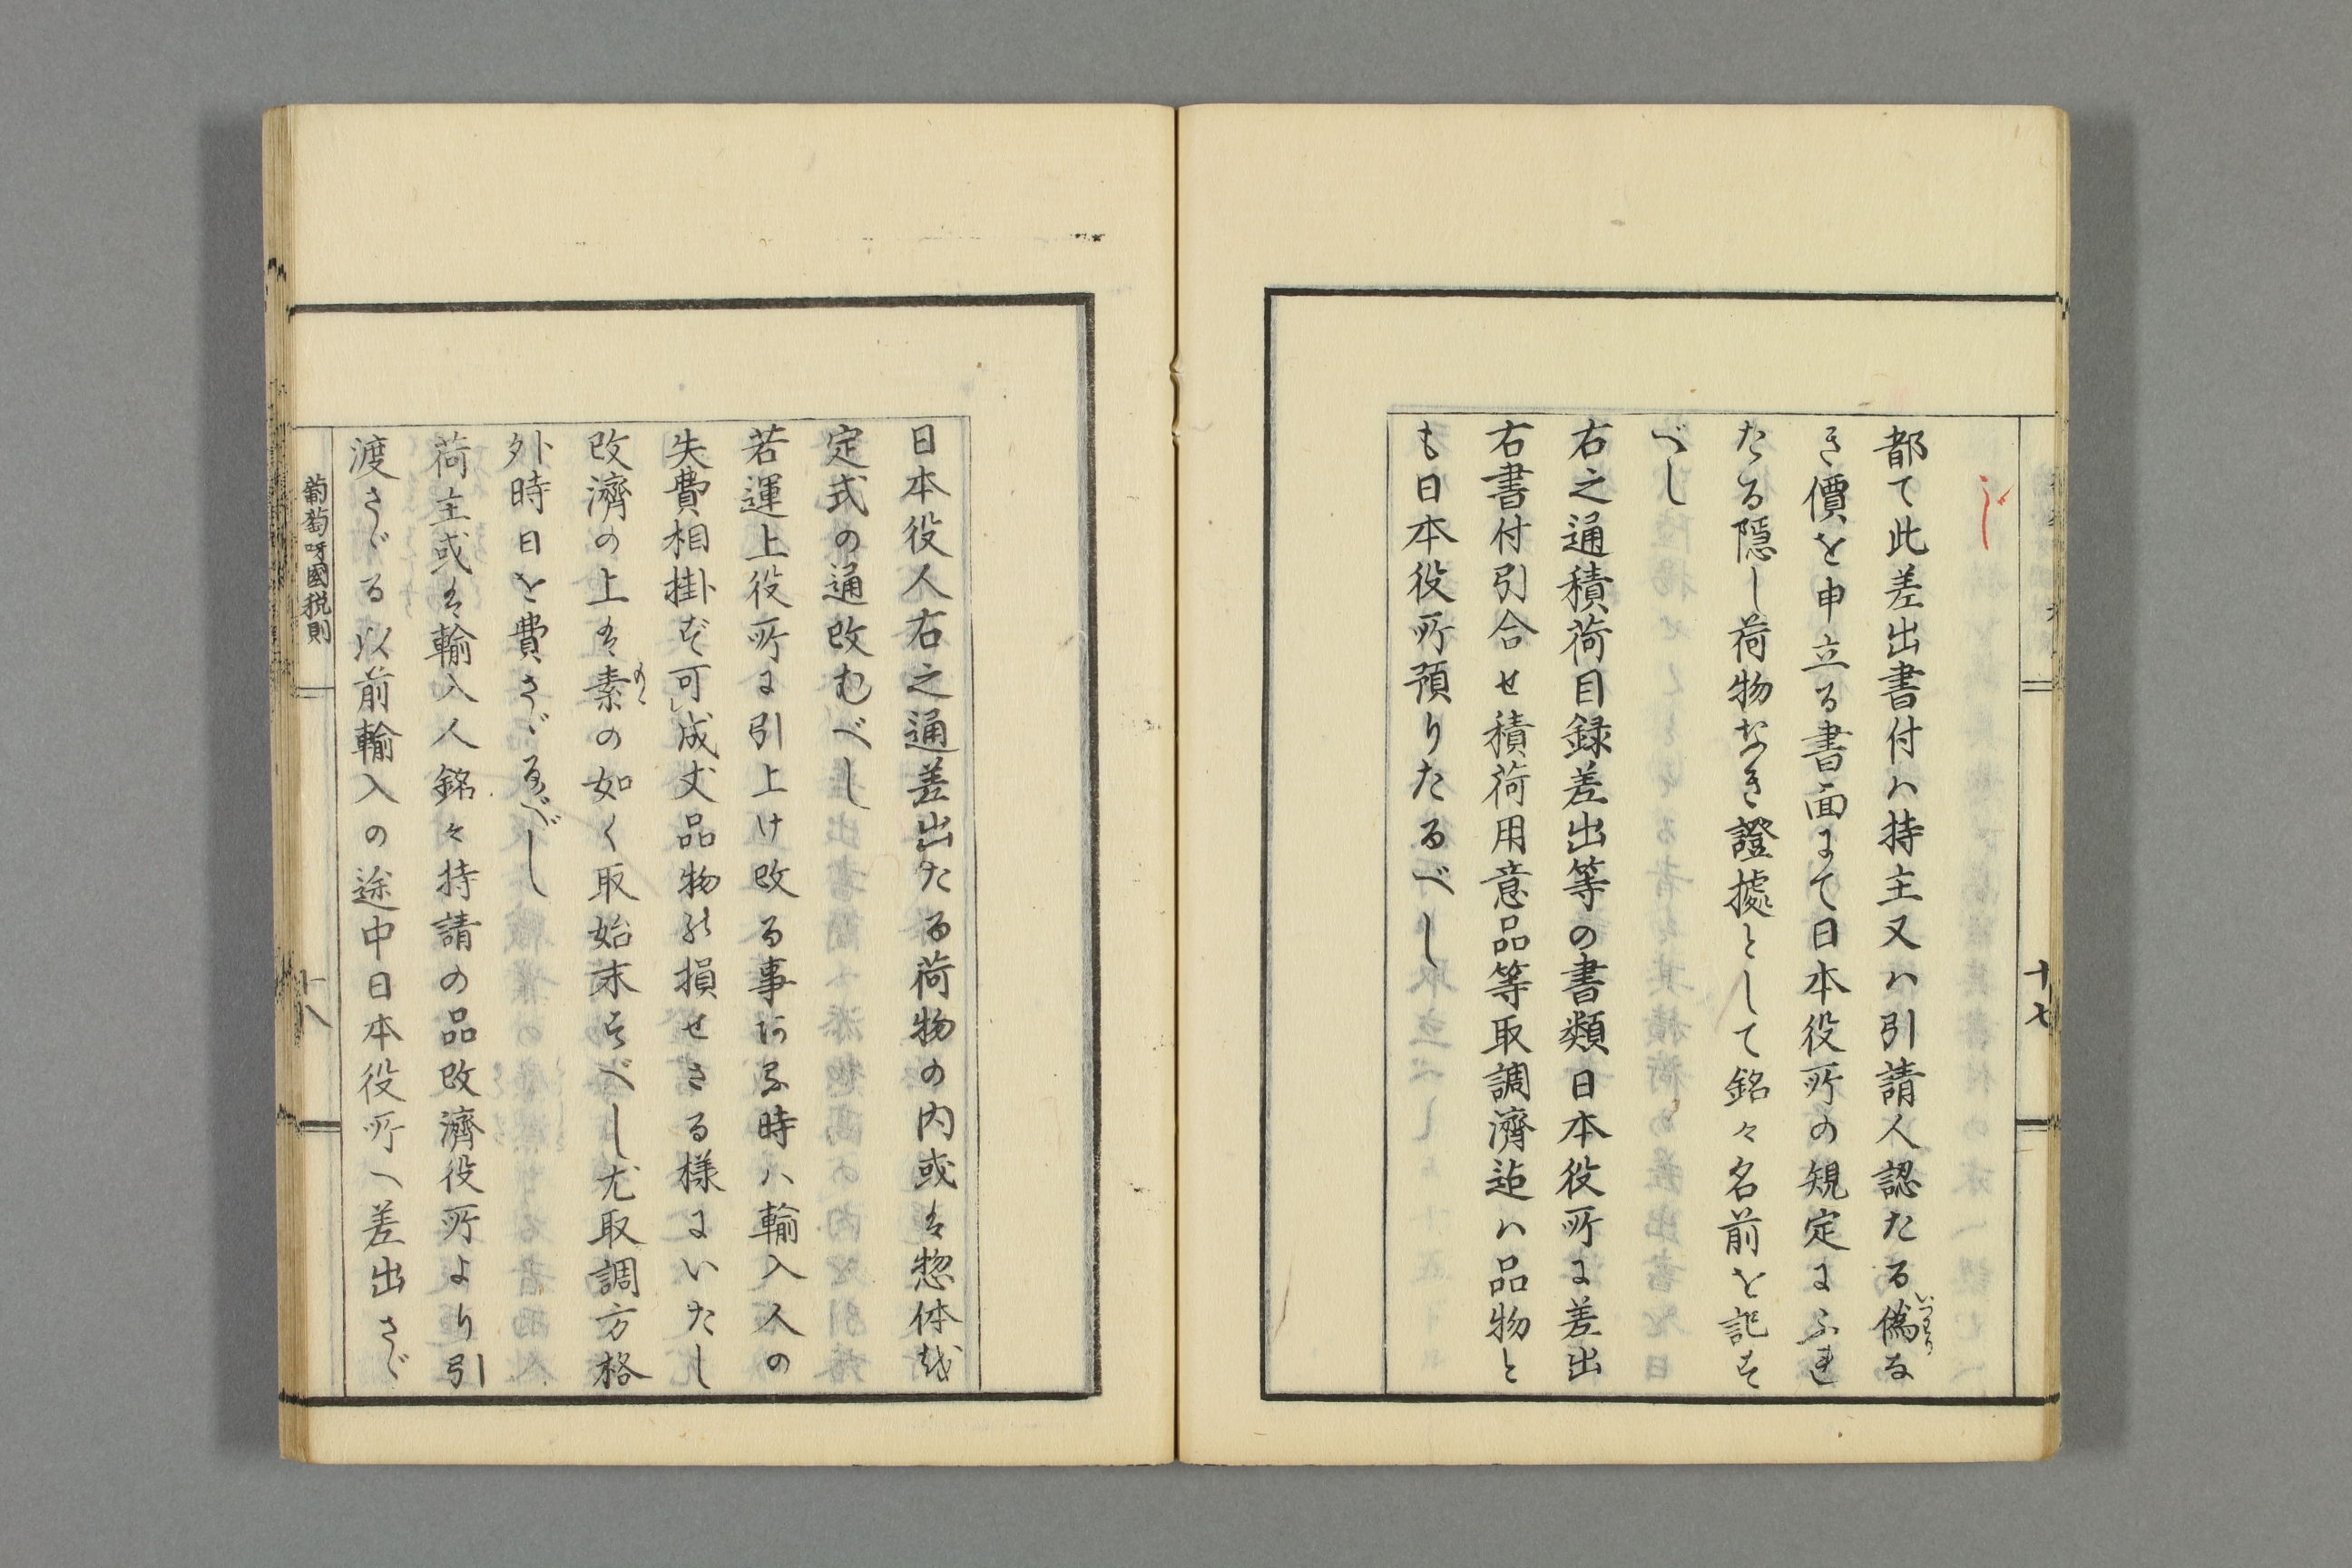 じ
都て此差出書付ハ持主又ハ引請人認たる偽な
いつわり
き價を申立る書面にて日本役所の規定にふれ
たる隠し荷物なき證據として銘々名前を記す
べし
右之通積荷目録差出等の書類日本役所に差出
右書付引合せ積荷用意品等取調濟迠ハ品物と
も日本役所預りたるべし
十七
日本役人右之通差出たる荷物の内或は惣体を
定式の通改むべし
若運上役所に引上け改る事ある時ハ輸入人の
失費相掛ず可成丈品物の損せさる様にいたし
改濟の上は素の如く取始末すべし尤取調方格
もと
外時日を費さゞるべし
荷主或は輸入人銘々持請の品改濟役所より引
渡さゞる以前輸入の途中日本役所へ差出さゞ
葡萄呀國税則
十八